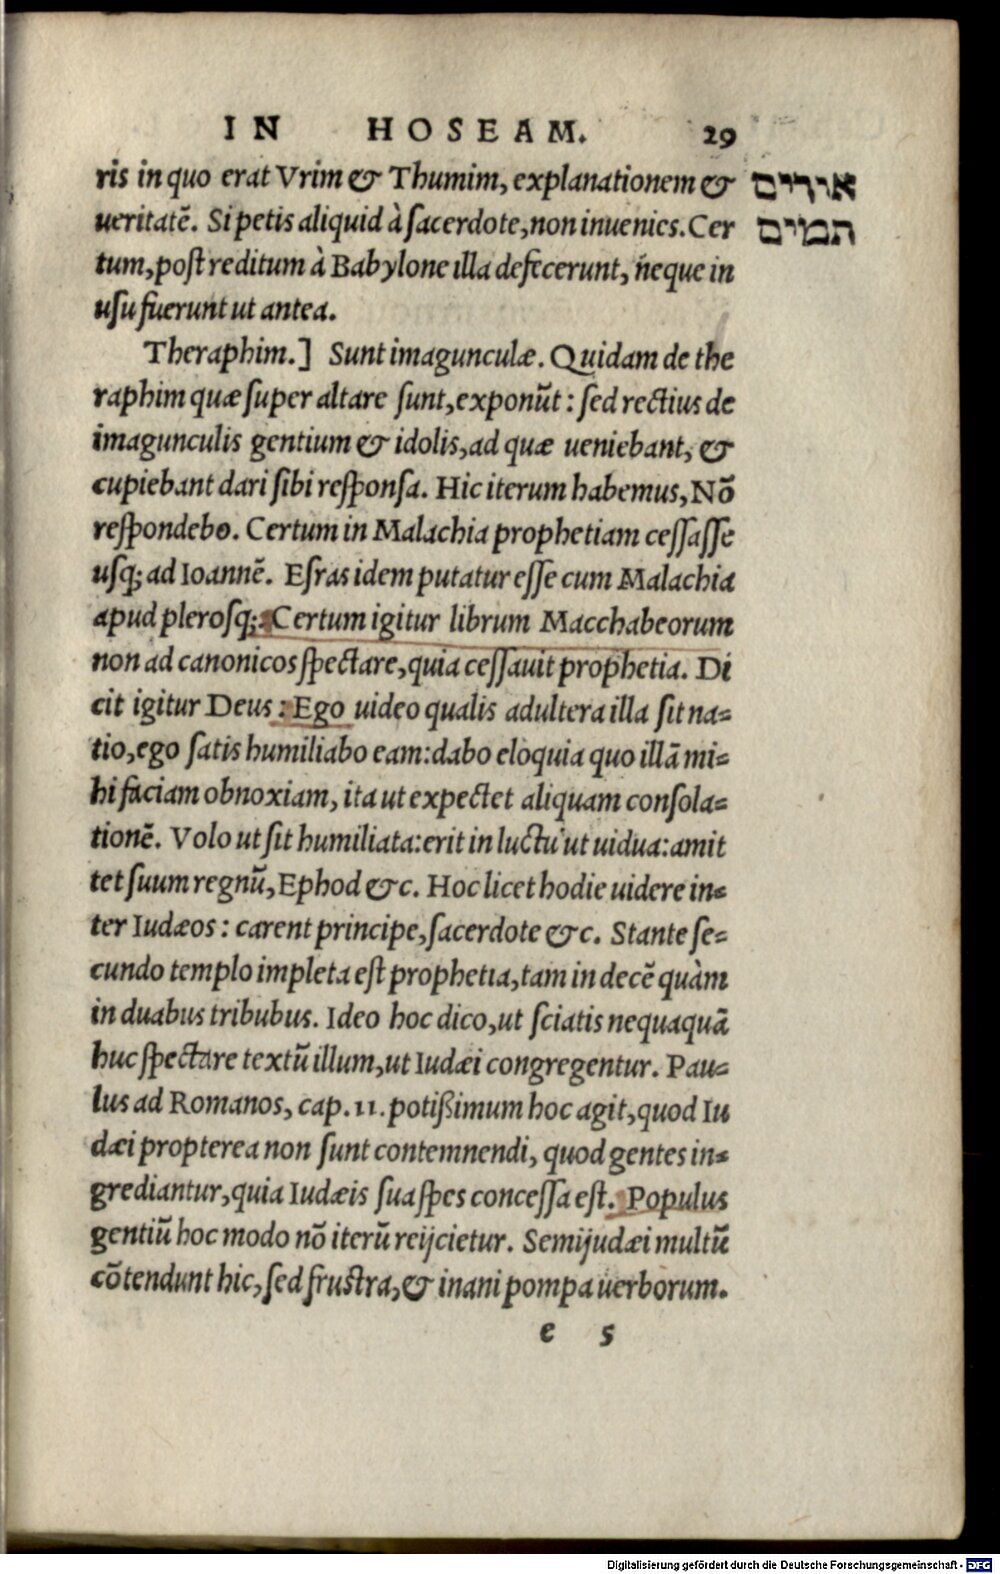 IN HOSEAM. 29
ris in quo erat Vrim & Thumim, explanationem &
ueritatē. Si petis aliquid à sacerdote, non inuenies. Cer
tum, post reditum à Babylone illa defecerunt, neque in
usu fuerunt ut antea.
אורים
תמים
Theraphim.] Sunt imagunculæ. Quidam de the
raphim quæ super altare sunt, exponūt: sed rectius de
imagunculis gentium & idolis, ad quæ ueniebant, &
cupiebant dari sibi responsa. Hic iterum habemus, Nō
respondebo. Certum in Malachia prophetiam cessasse
usq; ad Ioannē. Esras idem putatur esse cum Malachia
apud plerosq;. Certum igitur librum Macchabeorum
non ad canonicos spectare, quia cessauit prophetia. Di
cit igitur Deus: Ego uideo qualis adultera illa sit na=
tio, ego satis humiliabo eam: dabo eloquia quo illā mi=
hi faciam obnoxiam, ita ut expectet aliquam consola=
tionē. Volo ut sit humiliata: erit in luctu ut uidua: amit
tet suum regnū, Ephod &c. Hoc licet hodie uidere in=
ter Iudæos: carent principe, sacerdote &c. Stante se=
cundo templo impleta est prophetia, tam in decē quàm
in duabus tribubus. Ideo hoc dico, ut sciatis nequaquā
huc spectare textū illum, ut Iudæi congregentur. Pau=
lus ad Romanos, cap. 11. potißimum hoc agit, quod Iu
dæi propterea non sunt contemnendi, quod gentes in=
grediantur, quia Iudæis sua spes concessa est. Populus
gentiū hoc modo nō iterū reijcietur. Semijudæi multū
cōtendunt hic, sed frustra, & inani pompa uerborum.
e 5
Digitalisierung gefördert durch die Deutsche Forschungsgemeinschaft - DFG